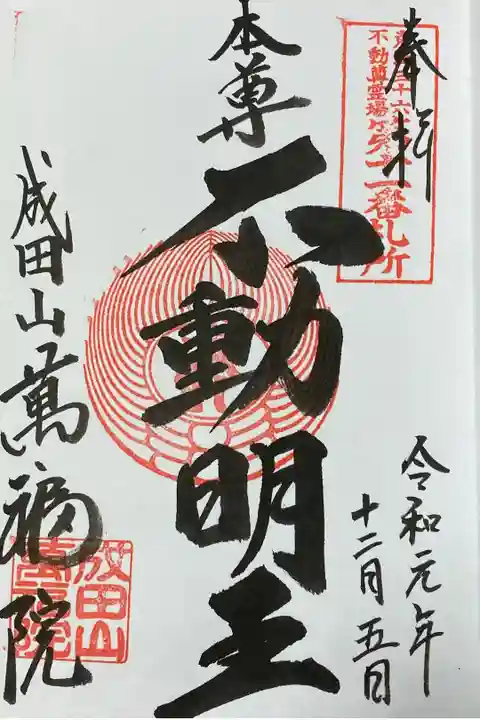 奉拝
不動尊霊場
十一番札所
本尊
不動明王
令和元年
十二月五日
成田山萬福院
成田山
萬福院